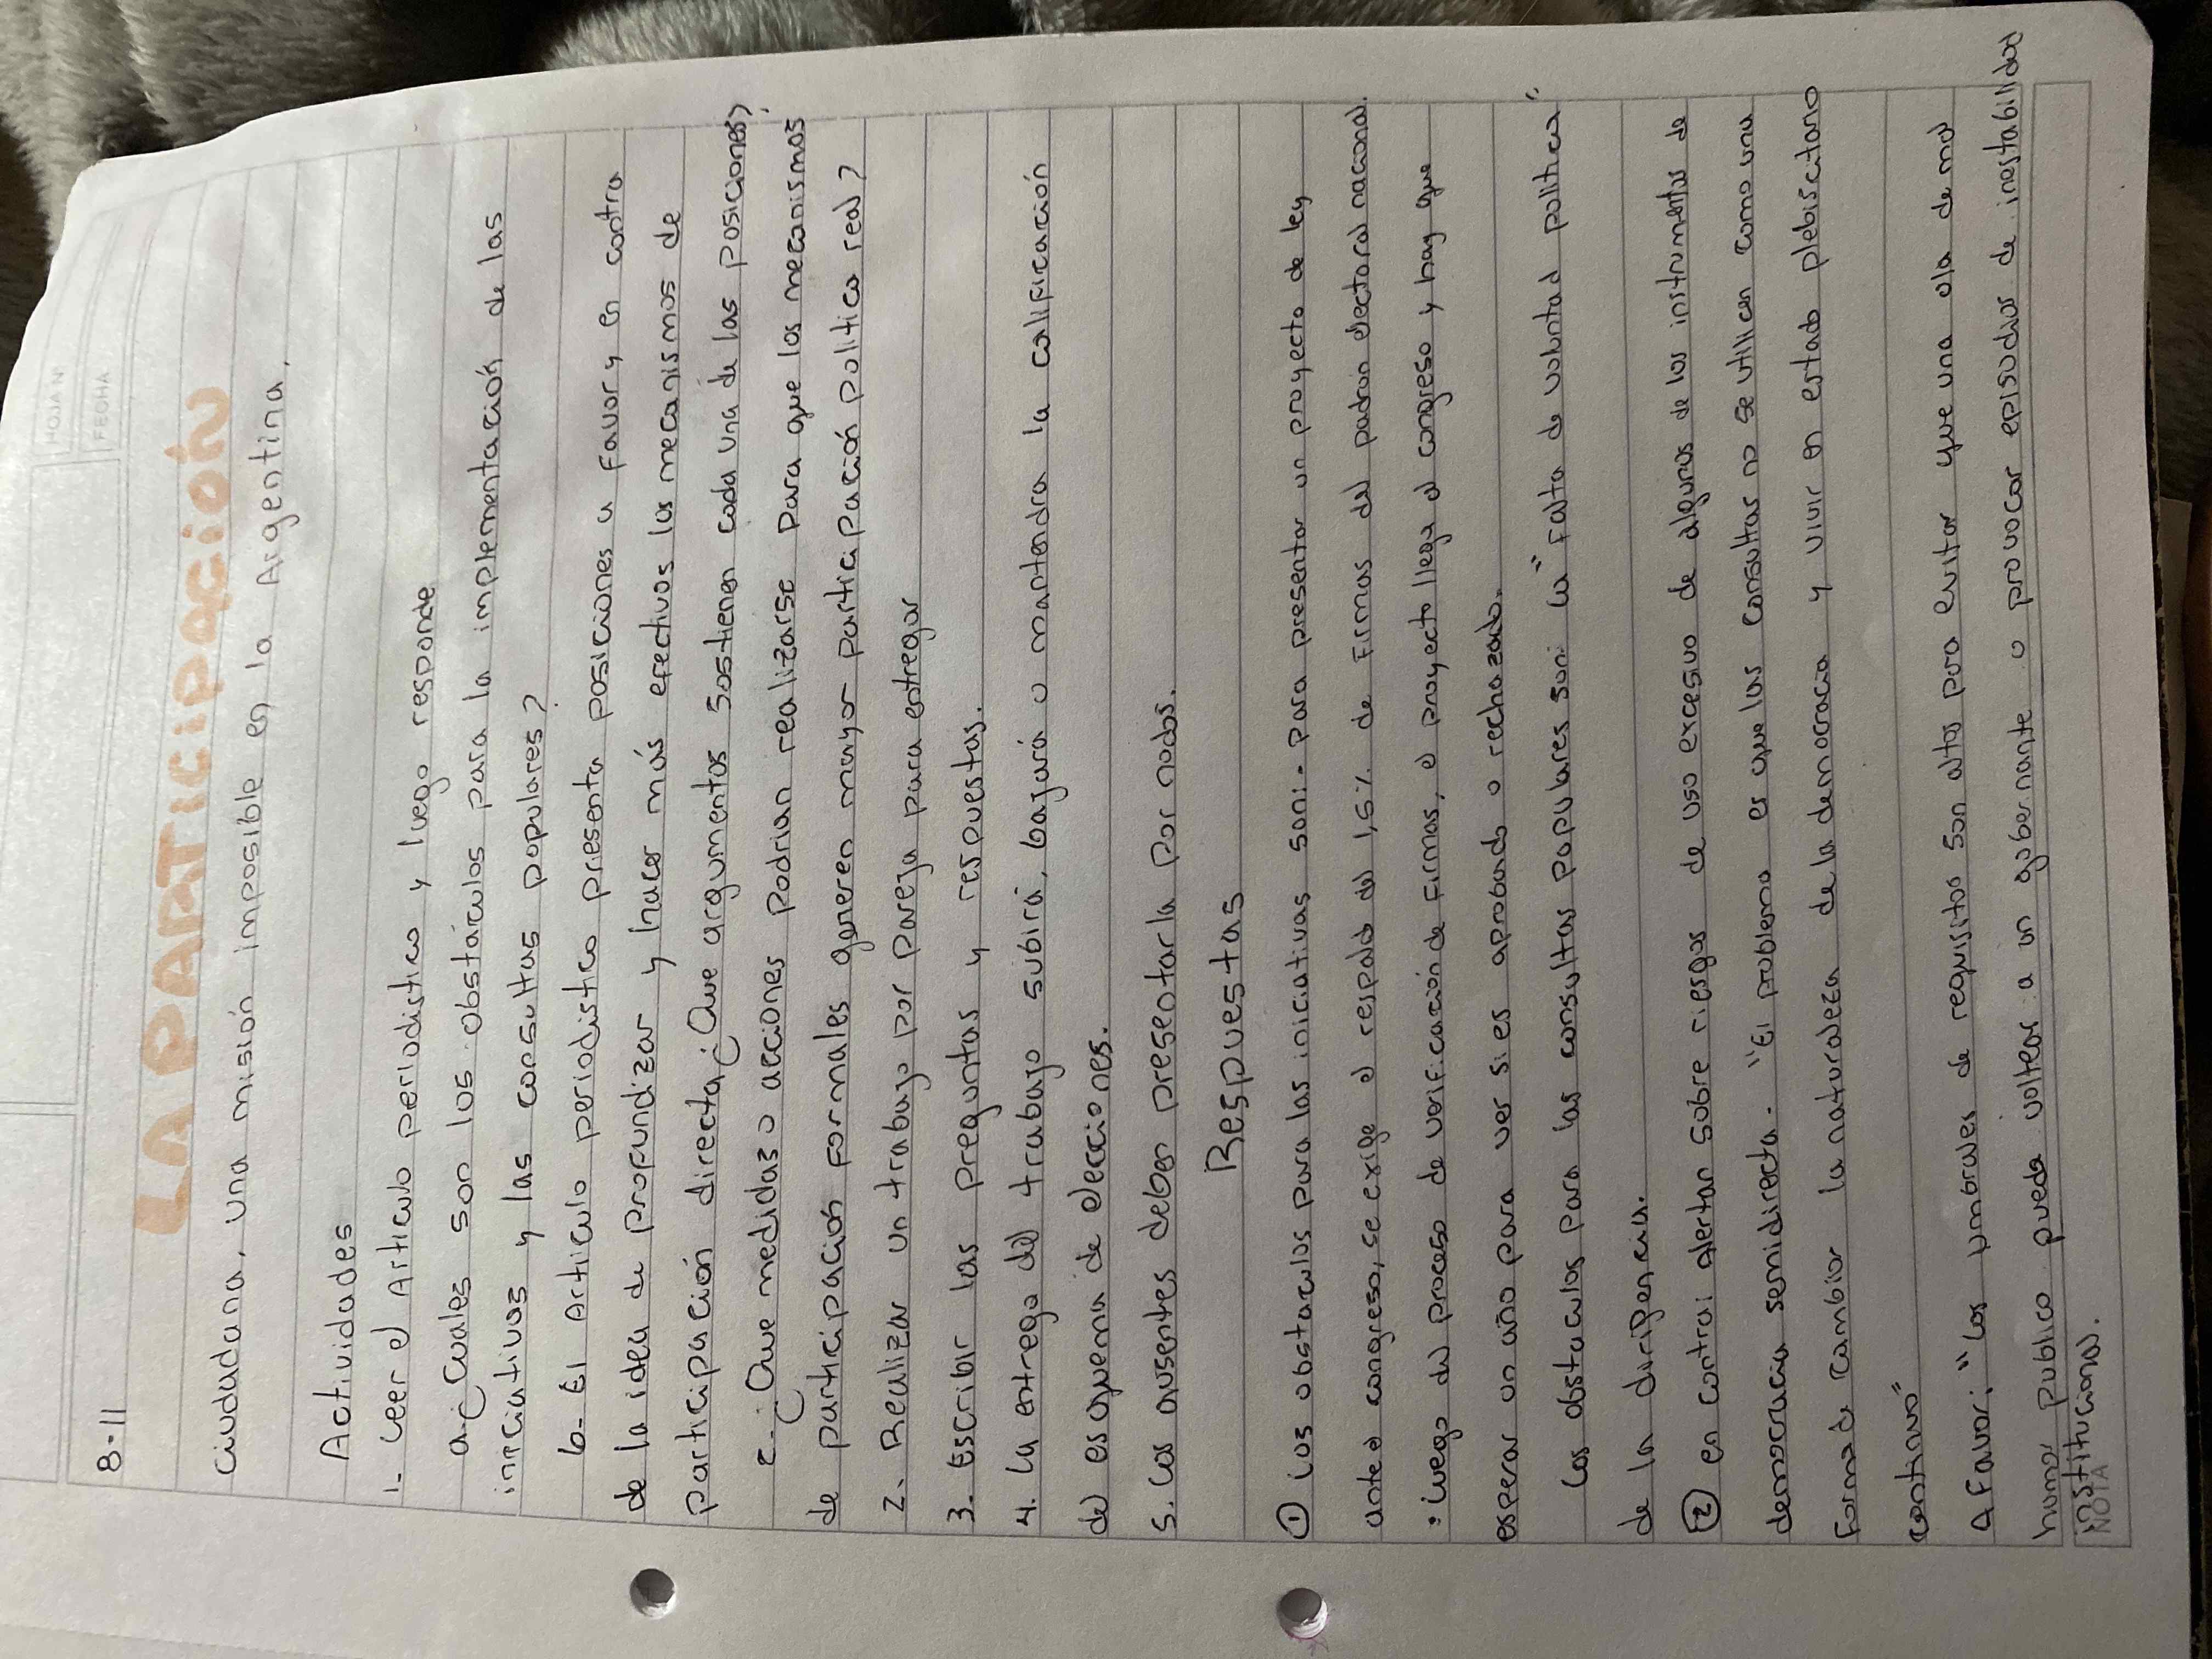 HOJA Nº
FECHA
8-11
LA PARTICIPACIÓN
Ciudadana, una misión imposible en la Argentina.
Actividades
1- Leer el Artículo periodistico y luego responde
a-¿Cuales son los obstáculos para la implementación de las
iniciativas y las consultas populares?
b- El Artículo periodistico presenta posiciones a favor y en contra
de la idea de profundizar y hacer más efectivos los mecanismos de
participación directa ¿Que argumentos sostienen cada una de las posiciones?
c-¿Que medidas o acciones podrian realizarse para que los mecanismos
de participación formales generen mayor participación politica real?
2. Realizar un trabajo por pareja para entregar
3- Escribir las preguntas y respuestas.
4. La entrega del trabajo subirá, bajará o mantendra la calificación
del esquema de elecciones.
5. Los ausentes deben presentarla por nodos.
Respuestas
① Los obstaculos para las iniciativas son:• para presentar un proyecto de ley
ante el congreso, se exige el respaldo del 1,5% de firmas del padron electoral nacional.
• Luego del proceso de verificación de firmas, el proyecto llega al congreso y hay que
esperar un año para ver si es aprobado o rechazado.
Los obstaculos para las consultas populares son: la "falta de voluntad politica"
de la dirigencia.
② en contra: alertan sobre riesgos de uso excesivo de algunos de los instrumentos de
democracia semidirecta. "El problema es que las consultas no se utilicen como una
forma de cambiar la naturaleza de la democracia y vivir en estado plebiscitario
continuo"
A favor: "los umbrales de requisitos son altos para evitar que una ola de mal
humor publico pueda voltear a un gobernante o provocar episodios de inestabilidad
institucional.
NOTA